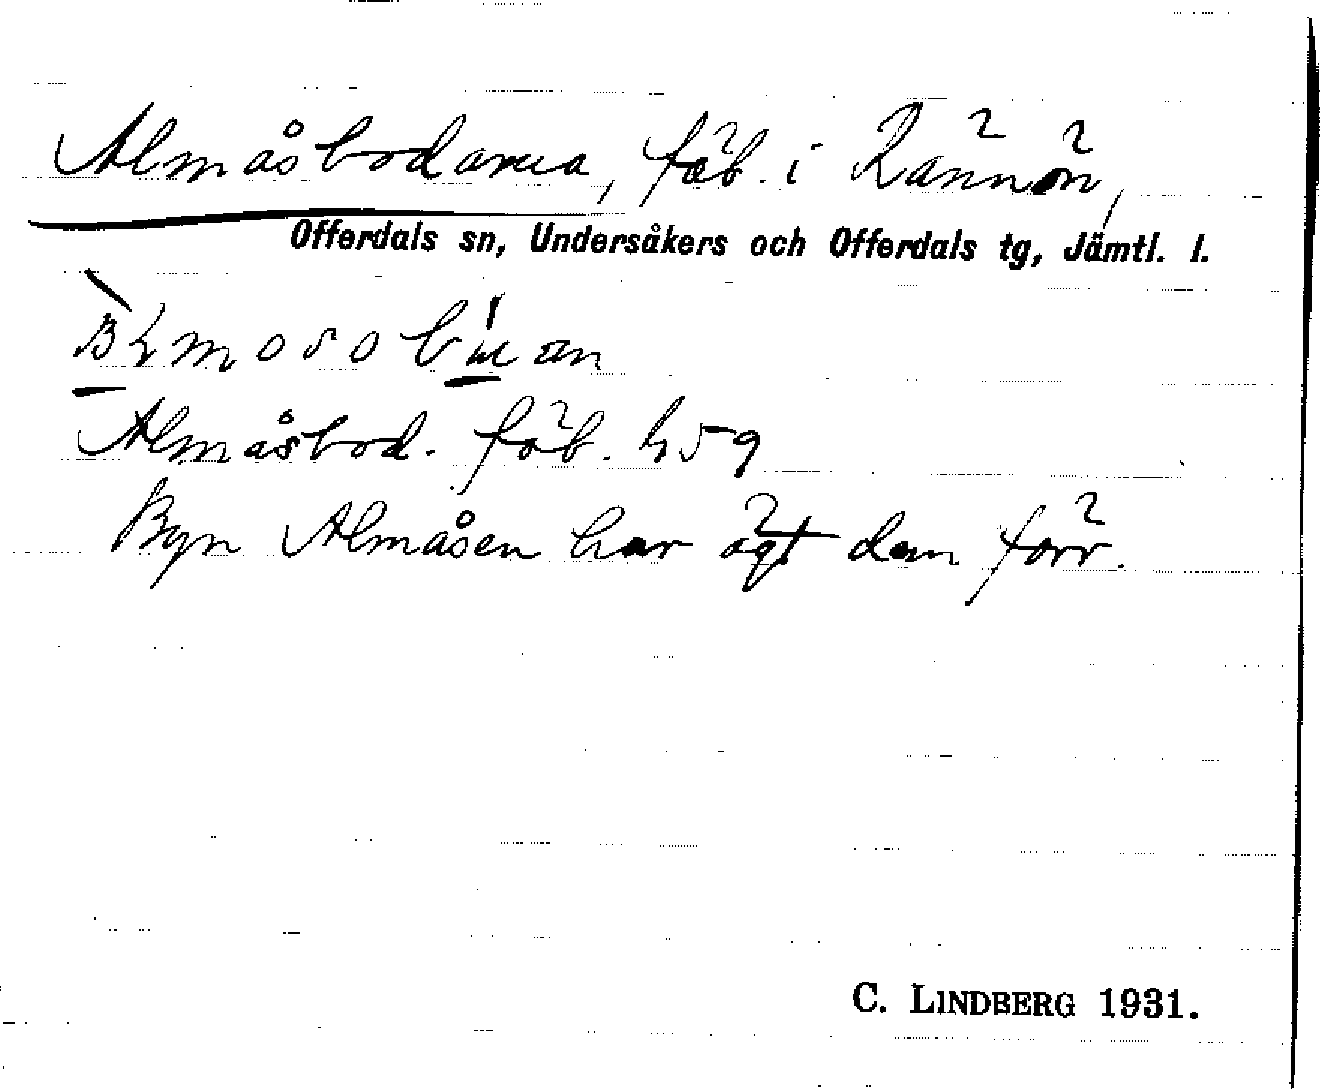 Almåsbodarna, fäb. i Rännön,
Offerdals sn, Undersåkers och Offerdals tg, Jämtl. l.
Almåsbod. fäb. h59
Byn Almåsen har ägt dem förr.
C. LINDBERG 1931.